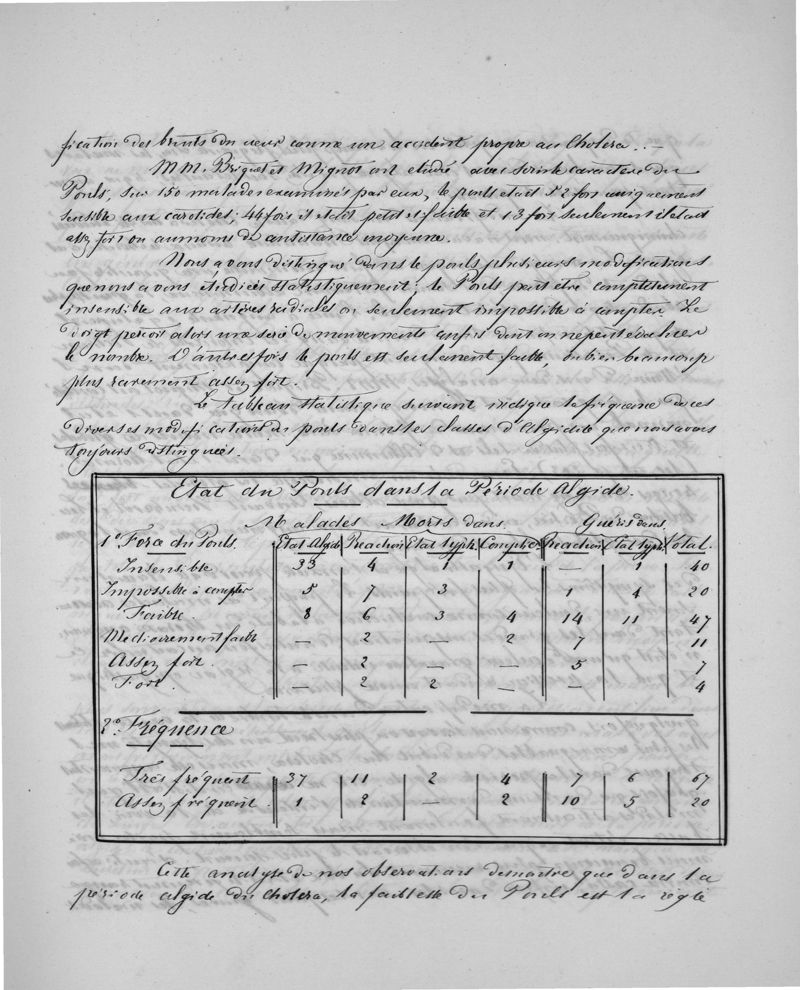 fication des bruits du cœur comme un accident propre au Choléra. –
MM. Briquet et Mignot ont étudié avec soin le caractère du
Pouls, sur 150 malades examinés par eux, le pouls etait 52 fois uniquement
sensible aux carotides; 44 fois il etait petit et faible et 13 fois seulement il etait
assez fort ou au moins de consistance moyenne.
Nous avons distingué dans le pouls plusieurs modifications
que nous avons étudiées statistiquement; le Pouls peut être complètement
insensible aux artères radiales ou seulement impossible à compter. Le
doigt perçoit alors une serie de mouvements confus dont on ne peut évaluer
le nombre. D'autres fois le pouls est seulement faible, ou bien beaucoup
plus rarement assez fort.
Le tableau statistique suivant indique la fréquence de ces
diverses modifications du pouls dans les classes d'Algidité que nous avons
toujours distinguées.
Etat du Pouls dans la Période Algide.
Malades Morts dans. Guéris dans.
1° Force du Pouls. Etat Algide Reaction Etat typh. Reaction Etat typh. Total.
Insensible 33 4 1 1 — 1 40
Impossible à compter 5 7 3 1 4 20
Faible. 8 6 3 4 14 11 47
Mediocrement faible — 2 — 2 7 11
Assez fort. — 2 — — 5 7
Fort. — 2 2 — — 4
2°. Fréquence
Très fréquent 37 11 2 4 7 6 67
Assez fréquent. 1 2 — 2 10 5 20
Cette analyse de nos observations demontre que dans la
période algide du Choléra, la faiblesse du Pouls est la règle